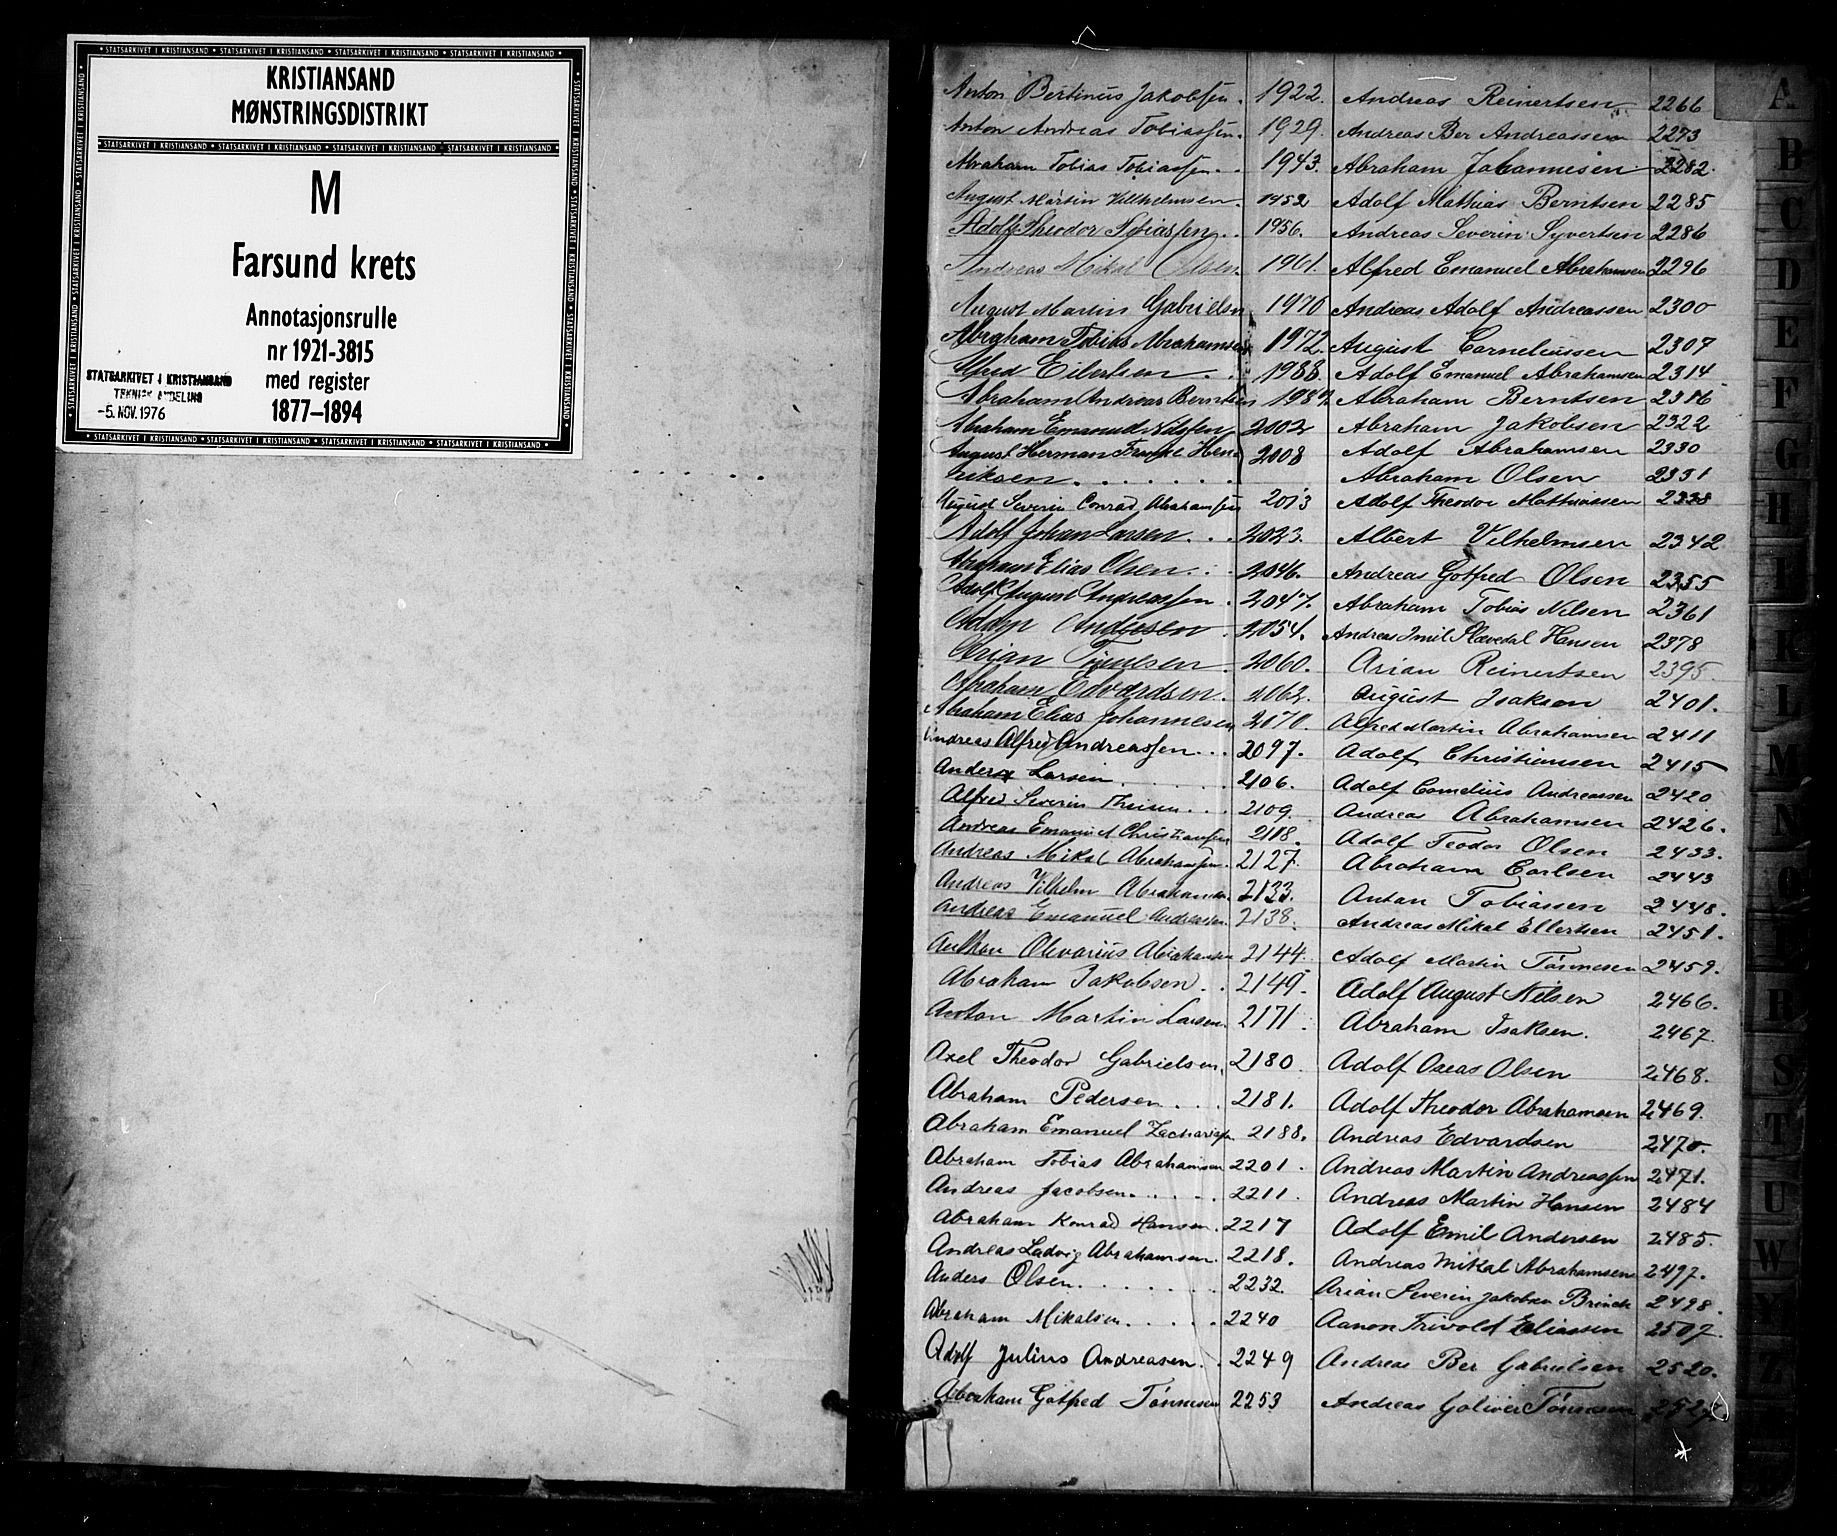 KRISTIANSAND
MØNSTRINGSDISTRIKT
M
Farsund krets
Annotasjonsrulle
nr 1921-3815
med register
1877–1894
STATSARKIVET I KRISTIANSAND
TEKNISK AVDELING
-5. NOV. 1976
Anton Bertinus Jakobsen. 1922.
Anton Andreas Tobiassen. 1929.
Abraham Tobias Tobiassen. . 1943.
August Martin Vilhelmsen. 1952
Adolf Theodor Tobiassen. . 1956.
Andreas Mikal Olsen. 1961.
August Martin Gabrielsen 1970
Abraham Tobias Abrahamsen 1972.
Alfred Eilertsen . . 1988.
Abraham Andreas Berntsen 1989.
Abraham Emanuel Nilsen 2002
August Herman Franke Hen- 2008
riksen . . . . . . .
August Severin Conrad Abrahamsen 2013
Adolf Johan Larsen. . . 2023.
Abraham Elias Olsen. . . 2046.
Adolf August Andreassen . 2047.
2054.
Arian Tønnesen . 2060.
Abraham Edvardsen. 2062.
Abraham Elias Johannesen 2070.
Andreas Alfred Andreassen. . . 2097.
Anders Larsen . . . . 2106.
Alfred Severin Theisen. . . 2109.
Andreas Emanuel Christiansen 2118.
Andreas Mikal Abrahamsen. 2127.
Andreas Vilhelm Abrahamsen. 2133.
Andreas Emanuel Andreassen. 2138.
Anthon Olivarius Abrahamsen 2144.
Abraham Jakobsen . . 2149.
Anton Martin Larsen. 2171.
Axel Theodor Gabrielsen. 2180.
Abraham Pedersen . . . 2181.
Abraham Emanuel Zachariasen 2188.
Abraham Tobias Abrahamsen 2201.
Andreas Jacobsen. . . . . 2211.
Abraham Konrad Hansen. 2217
Andreas Ludvig Abrahamsen. 2218.
Anders Olsen. . . . . . . 2232.
Abraham Mikalsen. . . . . 2240
Adolf Julius Andreasen. . 2249
Abraham Gotfred Tønnesen 2253
Andreas Reinertsen 2266
Andreas Ber Andreassen 2273
Abraham Johannesen 2282.
Adolf Mathias Berntsen 2285
Andreas Severin Syvertsen 2286
Alfred Emanuel Abrahamsen 2296
Andreas Adolf Andreassen 2300
August Corneliussen 2307
Adolf Emanuel Abrahamsen 2314
Abraham Berntsen 2316
Abraham Jakobsen 2322
Adolf Abrahamsen 2330
Abraham Olsen 2331
Adolf Theodor Mathiassen 2338
Albert Vilhelmsen 2342
Andreas Gotfred Olsen 2355
Abraham Tobias Nilsen 2361
Andreas Emil Hansen 2378
Arian Reinertsen 2395.
August Isaksen 2401.
Alfred Martin Abrahamsen 2411
Adolf Christiansen 2415
Adolf Cornelius Andreassen 2420
Andreas Abrahamsen 2426.
Adolf Teodor Olsen 2433.
Abraham Carlsen 2443
Anton Tobiassen 2448.
Andreas Mikal Ellertsen 2451.
Adolf Martin Tønnesen 2459.
Adolf August Nilsen 2466.
Abraham Isaksen. 2467.
Adolf Oseas Olsen 2468.
Adolf Theodor Abrahamsen 2469.
Andreas Edvardsen 2470.
Andreas Martin Andreassen 2471.
Andreas Martin Hansen 2484
Adolf Emil Andersen 2485.
Andreas Mikal Abrahamsen 2497.
Arian Severin Jakobsen Brinch 2498.
Aanon Trivold Eliassen 2507.
Andreas Ber Gabrielsen 2520.
Andreas Goliver Tønnesen
A
B
C
D
E
F
G
H
I
K
L
M
N
O
P
R
S
T
U
W
Z